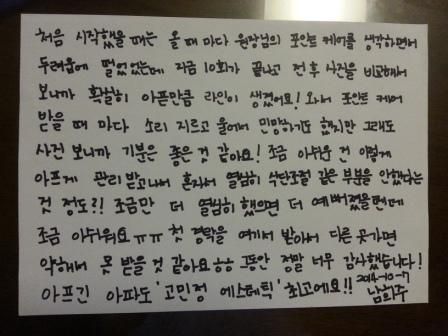 처음 시작했을 때는 올 때 마다 원장님의 포인트 케어를 생각하면서
두려움에 떨었었는데 지금 10회가 끝나고 전후 사진을 비교해서
보니까 확실히 아픈만큼 라인이 생겼어요! 와서 포인트 케어
받을 때 마다 소리 지르고 울어서 민망하기도 했지만 그래도
사진 보니까 기분은 좋은 것 같아요! 조금 아쉬운 건 이렇게
아프게 관리 받고나서 혼자서 열심히 식단조절 같은 부분을 안했다는
것 정도?! 조금만 더 열심히 했으면 더 예뻐졌을텐데
조금 아쉬워요 ㅠㅠ 첫 경락을 여기서 받아서 다른 곳가면
약해서 못 받을 것 같아요 ㅎㅎ 그동안 정말 너무 감사했습니다!
아프긴 아파도 '고민정 에스테틱' 최고에요!!
2014-10-17
남희주